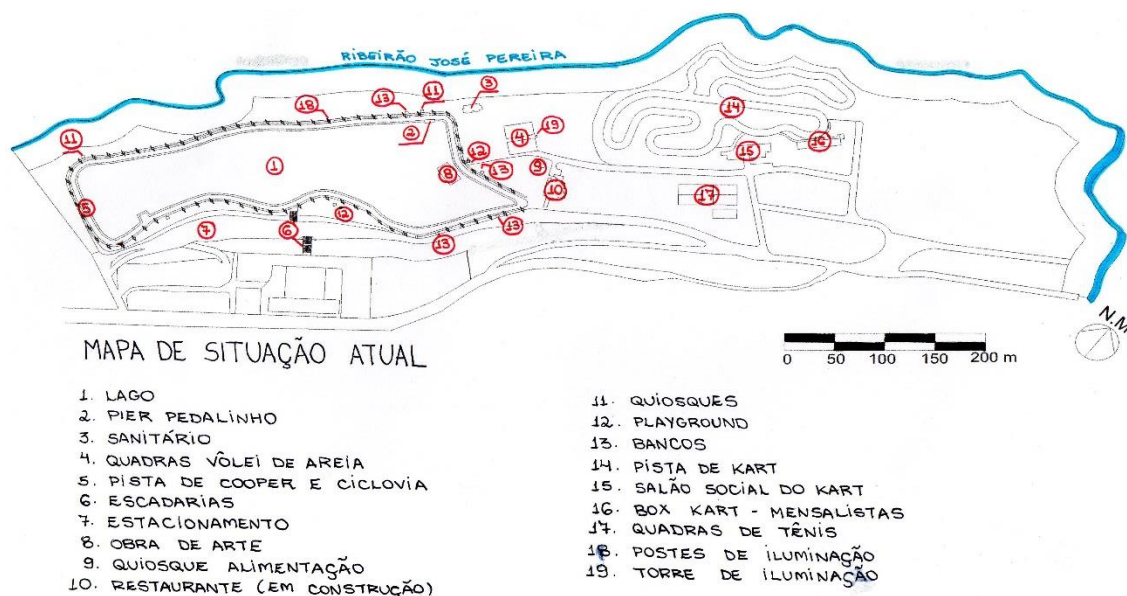 RIBEIRÃO JOSÉ PEREIRA
3
13
11
18
2
11
4
19
14
12
15
16
1
8
13
9
10
17
5
7
6
12
13
13
N.M
0 50 100 150 200 m
MAPA DE SITUAÇÃO ATUAL
1. LAGO
2. PIER PEDALINHO
3. SANITÁRIO
4. QUADRAS VÔLEI DE AREIA
5. PISTA DE COOPER E CICLOVIA
6. ESCADARIAS
7. ESTACIONAMENTO
8. OBRA DE ARTE
9. QUIOSQUE ALIMENTAÇÃO
10. RESTAURANTE (EM CONSTRUÇÃO)
11. QUIOSQUES
12. PLAYGROUND
13. BANCOS
14. PISTA DE KART
15. SALÃO SOCIAL DO KART
16. BOX KART - MENSALISTAS
17. QUADRAS DE TÊNIS
18. POSTES DE ILUMINAÇÃO
19. TORRE DE ILUMINAÇÃO